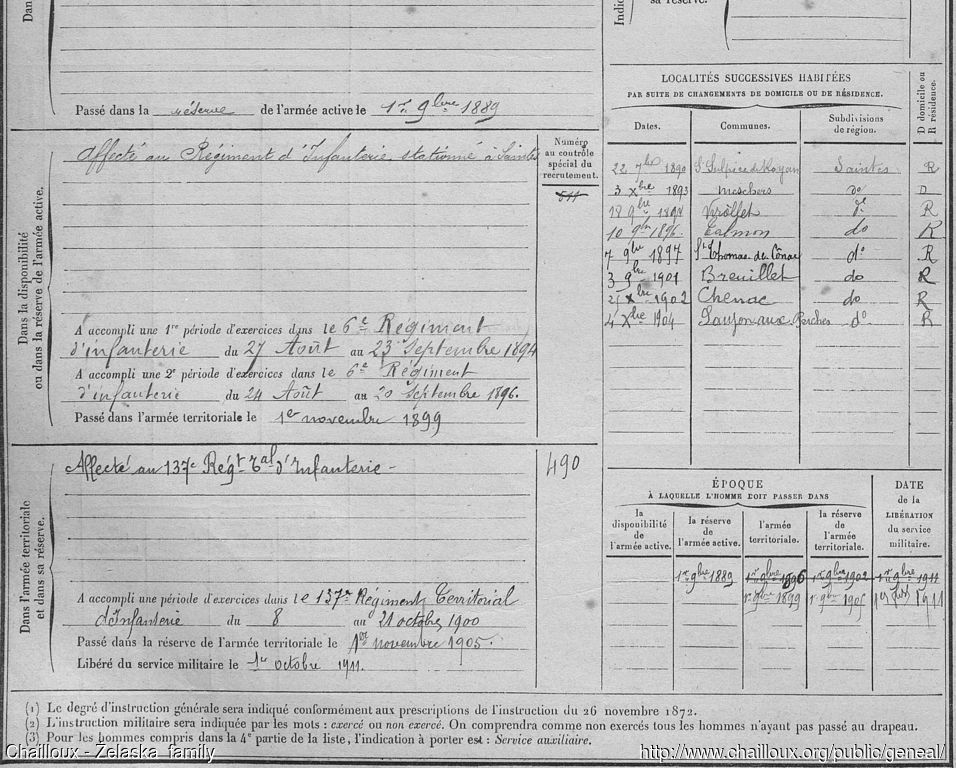 Dan
Indic
sa réserve.
Passé dans la réserve de l'armée active le 1er 9bre 1889
Dans la disponibilité
ou dans la réserve de l'armée active.
Affecté au Régiment d'Infanterie stationné à Saintes
Numéro
au contrôle
spécial du
recrutement.
511
A accompli une 1re période d'exercices dans le 6e Régiment
d'infanterie du 27 Août au 23 Septembre 1894
A accompli une 2e période d'exercices dans le 6e Régiment
d'infanterie du 24 Août au 20 Septembre 1896.
Passé dans l'armée territoriale le 1er novembre 1899
Dans l'armée territoriale
et dans sa réserve.
Affecté au 137e Régt Tal d'Infanterie -
490
A accompli une période d'exercices dans le 137e Régiment Territorial
d'Infanterie du 8 au 21 octobre 1900
Passé dans la réserve de l'armée territoriale le 1er novembre 1905.
Libéré du service militaire le 1er octobre 1911.
LOCALITÉS SUCCESSIVES HABITÉES
PAR SUITE DE CHANGEMENTS DE DOMICILE OU DE RÉSIDENCE.
D domicile ou
R résidence.
Dates. Communes. Subdivisions
de région.
22 7bre 1890 St Sulpice de Royan Saintes R
3 Xbre 1893 Meschers do D
18 9bre Virollet do R
10 9bre 1896. Talmon do R
7 9bre 1897 St Thomas du Cônac do R
3 9bre 1901 Breuillet do R
Xbre 1902 Chenac do R
4 Xbre 1904 do R
ÉPOQUE
À LAQUELLE L'HOMME DOIT PASSER DANS
DATE
de la
LIBÉRATION
du service
militaire.
la
disponibilité
de
l'armée active.
la réserve
de
l'armée active.
l'armée
territoriale.
la réserve
de
l'armée
territoriale.
1er 9bre 1889 1er 9bre 1896 1er 9bre 1902 1er 9bre 1911
1er 9bre 1899 1er 9bre 1905 1er 1911
(1) Le degré d'instruction générale sera indiqué conformément aux prescriptions de l'instruction du 26 novembre 1872.
(2) L'instruction militaire sera indiquée par les mots : exercé ou non exercé. On comprendra comme non exercés tous les hommes n'ayant pas passé au drapeau.
(3) Pour les hommes compris dans la 4e partie de la liste, l'indication à porter est : Service auxiliaire.
Chailloux - Zelaska family
http://www.chailloux.org/public/geneal/